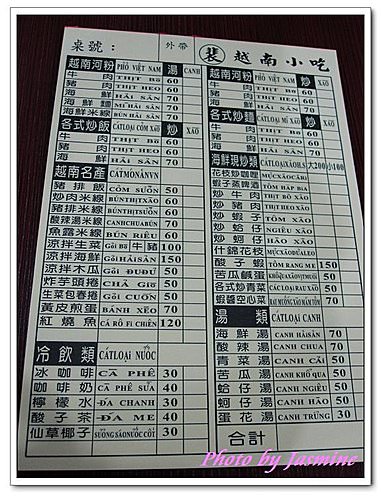 桌號：
外帶
越南河粉 PHỞ VIỆT NAM 湯 CANH
牛 肉 THỊT BÒ 60
豬 肉 THỊT HEO 60
海 鮮 HẢI SẢN 70
海鮮麵 MÌ HẢI SẢN 70
海鮮米線 BÚN HẢI SẢN 70
各式炒飯 CÁT LOẠI CƠM XÀO 炒 XÀO
牛 肉 THỊT BÒ 60
豬 肉 THỊT HEO 60
海 鮮 HẢI SẢN 70
越南名產 CÁT MÓN ĂN VN
豬排飯 CƠM SUỜN 50
炒肉米線 BÚN THỊT XÀO 60
豬排米線 60
酸辣湯米線 BÚN CANH CHUA 70
魚露米線 BÚN RIÊU 60
涼拌生菜 GỎI BÒ 牛 豬 100
涼拌海鮮 GỎI HẢI SẢN 150
涼拌木瓜 GỎI ĐU ĐỦ 50
炸芋頭捲 CHẢ GIÒ 50
生菜包春捲 GỎI CUỐN 50
黃皮煎蛋 BÁNH XÈO 70
紅燒魚 CÁ RÔ FI CHIÊN 120
冷飲類 CÁT LOẠI NƯỚC
冰咖啡 CÀ PHÊ 30
咖啡奶 CÀ PHÊ SỮA 40
檸檬水 ĐÁ CHANH 30
酸子茶 ĐÁ ME 40
仙草椰子 SƯƠNG SÁO NƯỚC CỐT 30
裴 越南小吃
越南河粉 PHỞ VIỆT NAM 炒 XÀO
牛 肉 THỊT BÒ 60
豬 肉 THỊT HEO 60
海 鮮 HẢI SẢN 70
各式炒麵 CÁT LOẠI MÌ XÀO 炒 XÀO
牛 肉 THỊT BÒ 60
豬 肉 THỊT HEO 60
海 鮮 HẢI SẢN 70
海鮮現炒類 CÁT LOẠI XÀO H.S 大200 小100
花枝炒咖哩 MỰC XÀO CÀ RI
蝦子蒸啤酒 TÔM HẤP BIA
炒牛肉 THỊT BÒ XÀO
炒豬肉 THỊT HEO XÀO
炒蝦子 TÔM XÀO
炒蛤仔 NGHIÊU XÀO
炒蚵仔 HÀO XÀO
什錦花枝 MỰC XÀO DƯA LEO
酸子蝦 TÔM RANG ME 150
苦瓜鹹蛋 150
各式炒青菜 150
蝦醬空心菜 RAU MUỐNG XÀO MẮM TÔM 150
湯 類 CÁT LOẠI CANH
海鮮湯 CANH HẢI SẢN 70
酸辣湯 CANH CHUA 70
青菜湯 CANH CẢI 50
苦瓜湯 CANH KHỔ QUA 50
蛤仔湯 CANH NGHIÊU 50
蚵仔湯 CANH HÀO 50
蛋花湯 CANH TRỨNG 30
合計
Photo by Jasmine